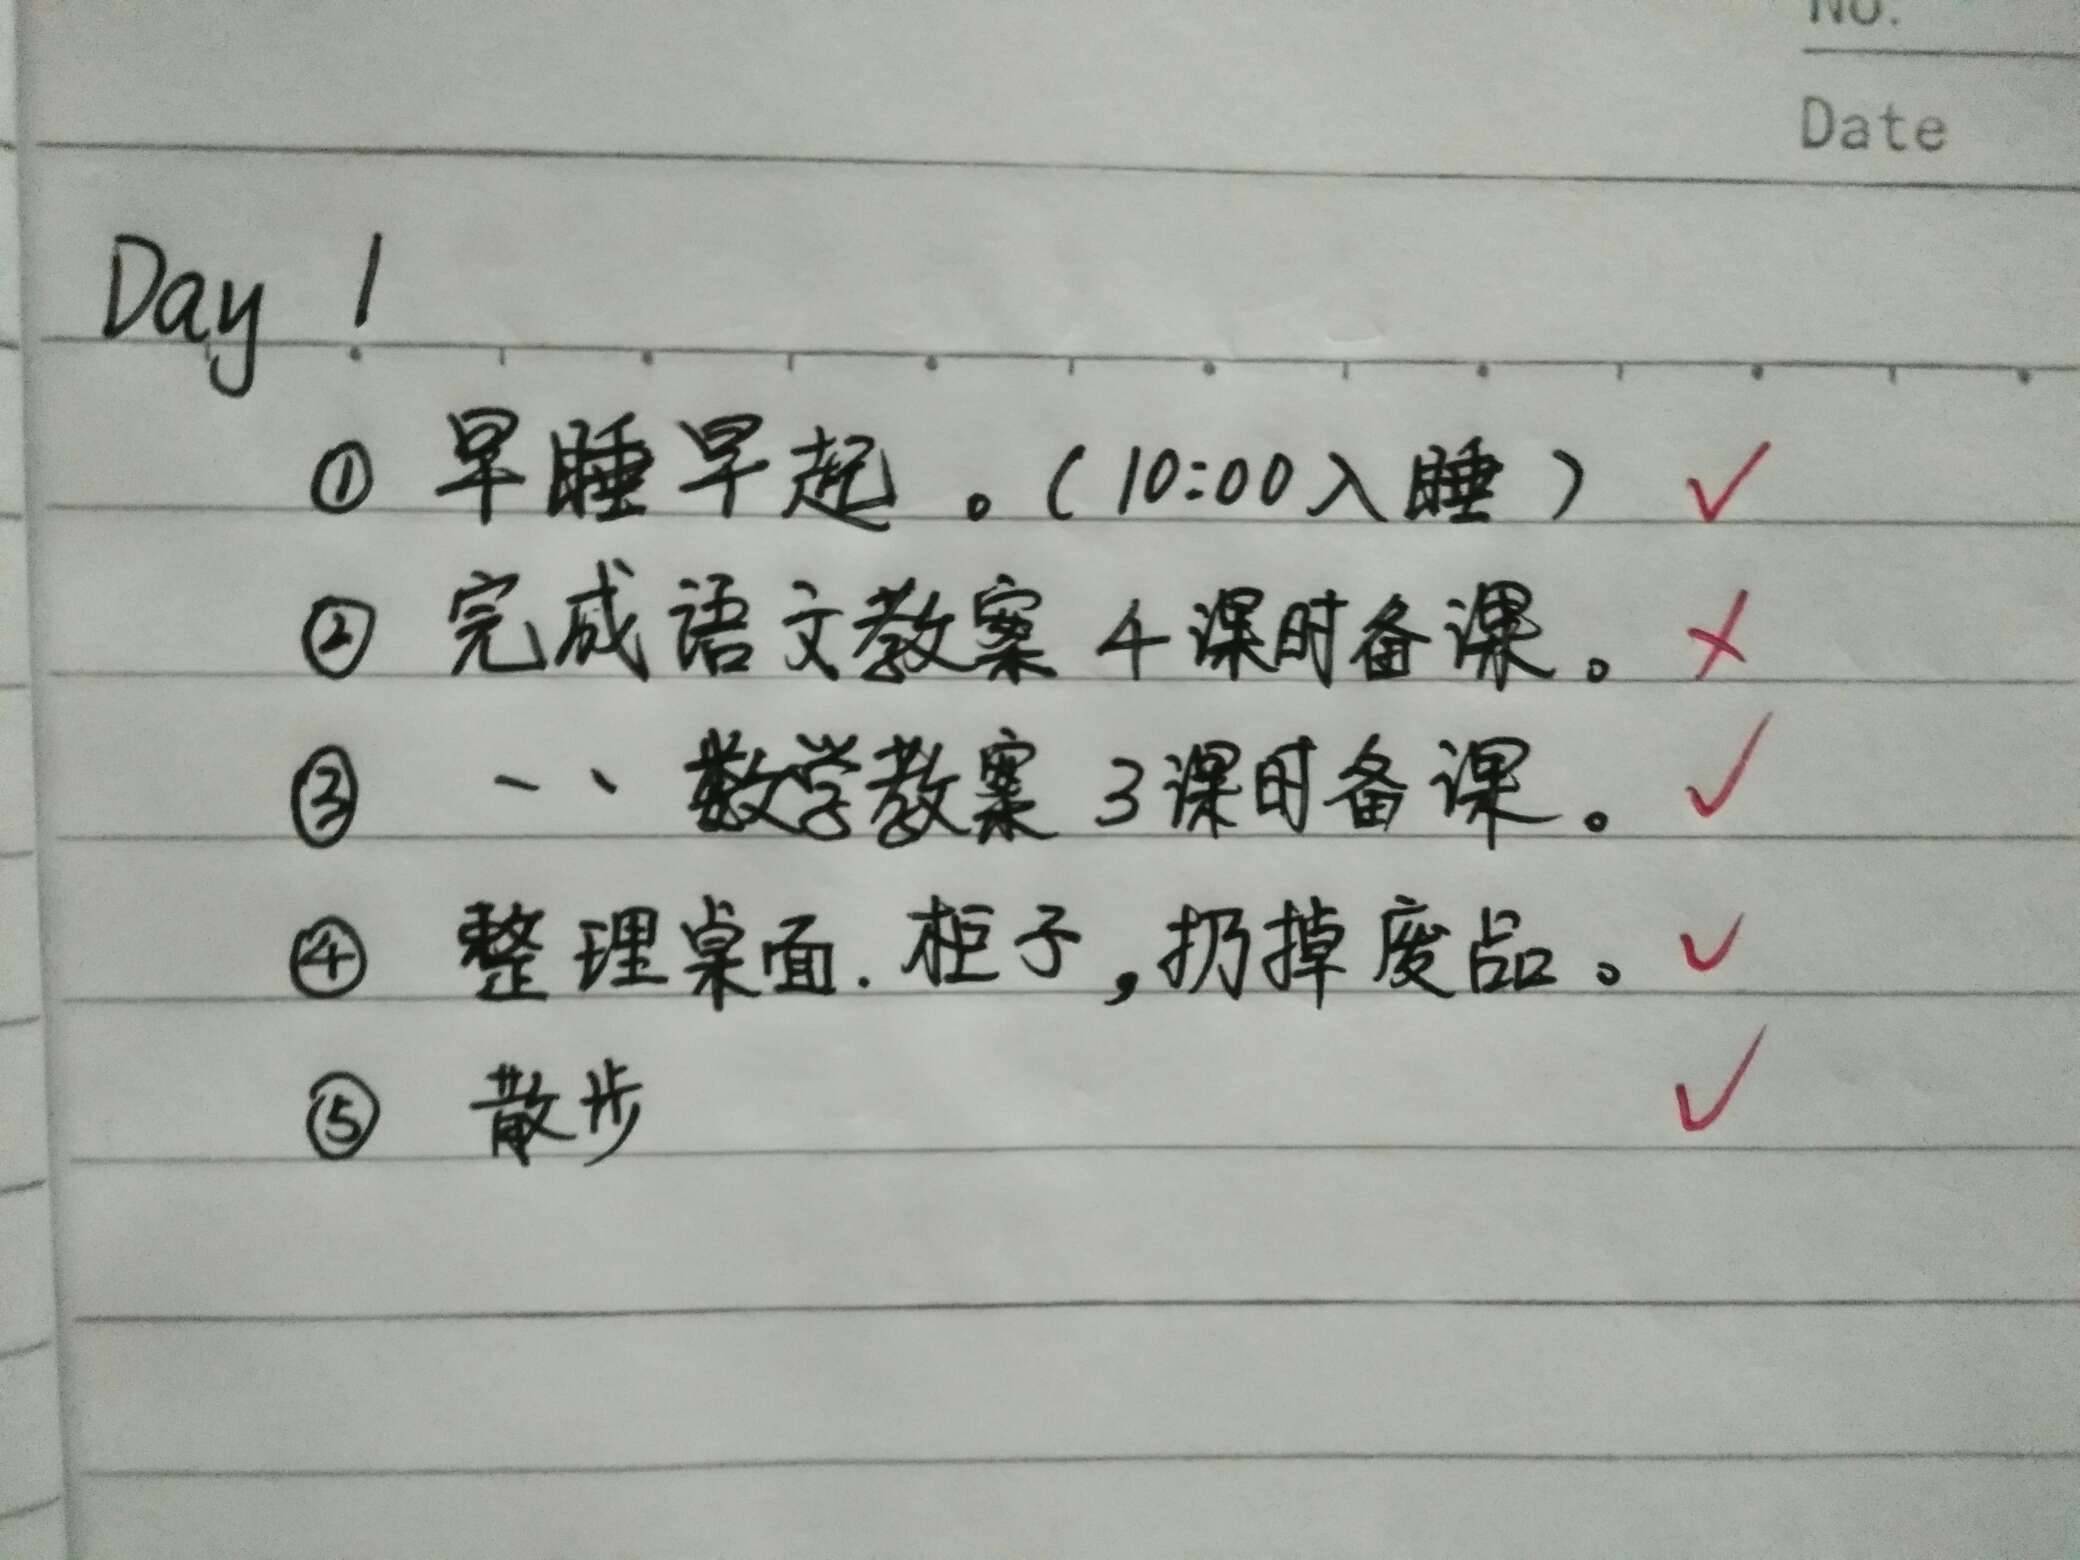 No.
Date
Day 1
① 早睡早起。(10:00入睡) ✓
② 完成语文教案4课时备课。 ✗
③ 、、 数学教案3课时备课。 ✓
④ 整理桌面.柜子,扔掉废品。 ✓
⑤ 散步 ✓